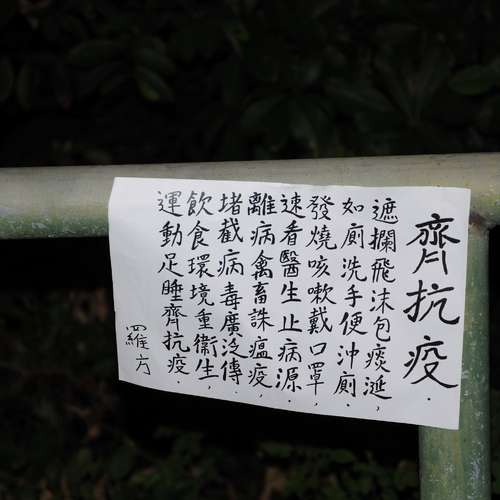 齊抗疫.
遮攔飛沫包痰涎,
如廁洗手便沖廁.
發燒咳嗽戴口罩,
速看醫生止病源.
離病禽畜誅瘟疫,
堵截病毒廣泛傳.
飲食環境重衞生,
運動足睡齊抗疫.
羅方